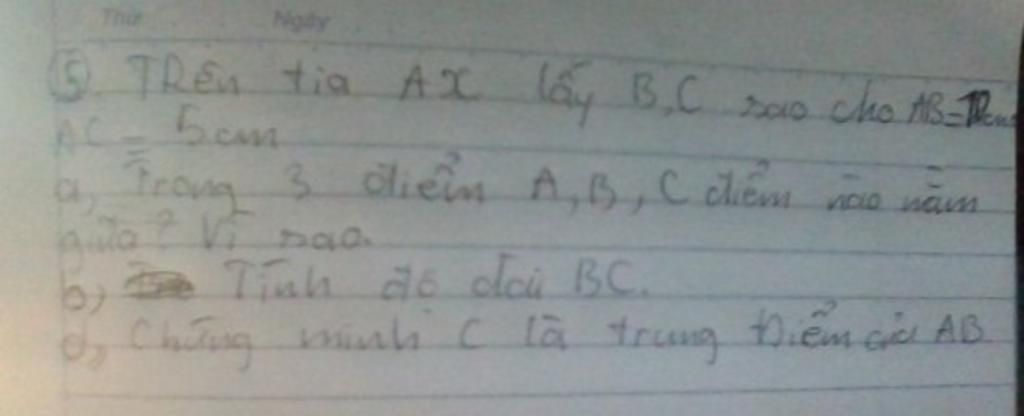 Thứ Ngày
⑤. TRên tia AX lấy B,C sao cho AB=
AC = 5cm
a, Trong 3 điểm A,B, C điểm nào nằm
giữa? Vì sao.
b, Tính độ dài BC.
d, Chứng minh C là trung điểm của AB